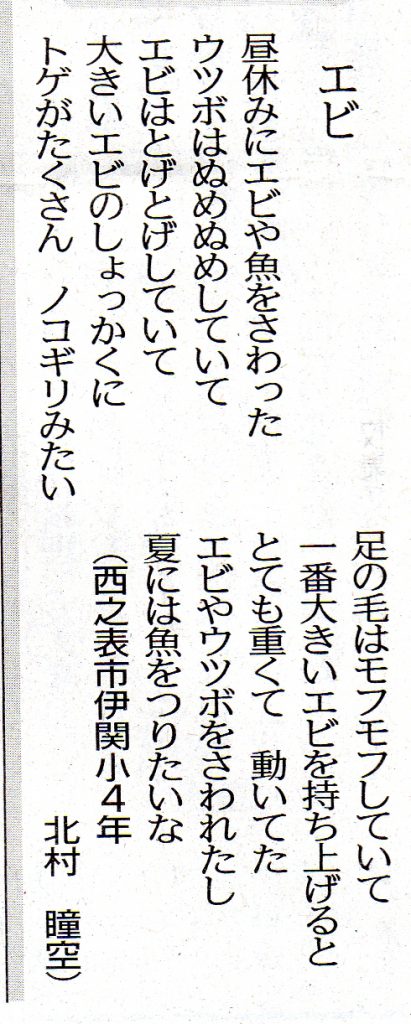 エビ
昼休みにエビや魚をさわった
ウツボはぬめぬめしていて
エビはとげとげしていて
大きいエビのしょっかくに
トゲがたくさん　ノコギリみたい
足の毛はモフモフしていて
一番大きいエビを持ち上げると
とても重くて　動いてた
エビやウツボをさわれたし
夏には魚をつりたいな
（西之表市伊関小４年
北村　瞳空）